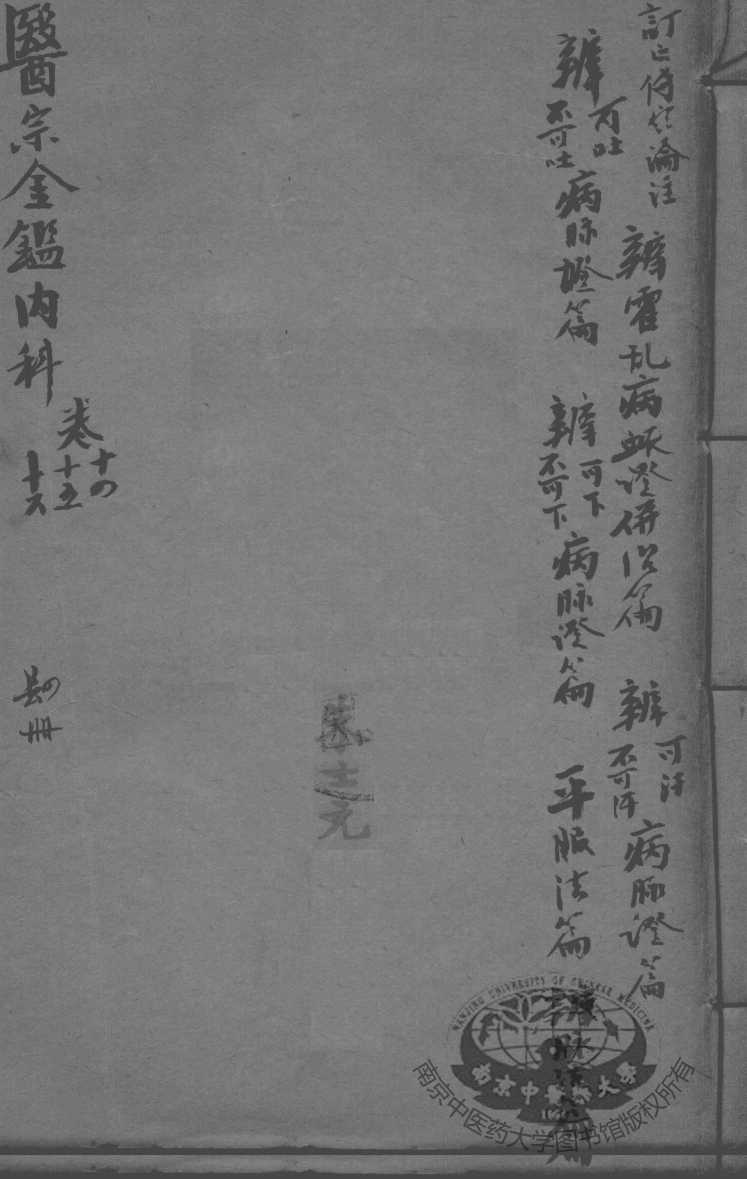 訂正傷寒論註
辨霍乱病脈證併治篇
辨可汗不可汗病脉證篇
辨可吐不可吐病脉證篇
辨可下不可下病脉證篇
平脈法篇
辨脉法篇
士元
醫宗金鑑内科
卷十四
十五
十六
冊
NANJING UNIVERSITY OF CHINESE MEDICINE
南京中醫藥大學
南京中医药大学图书馆版权所有